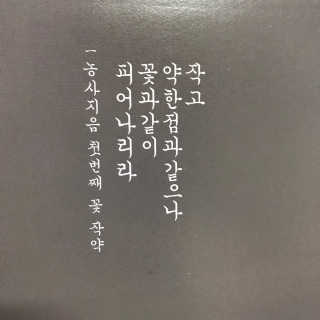 작고
약한점과같으나
꽃과같이
피어나리라
— 농사지음 첫번째 꽃 작약